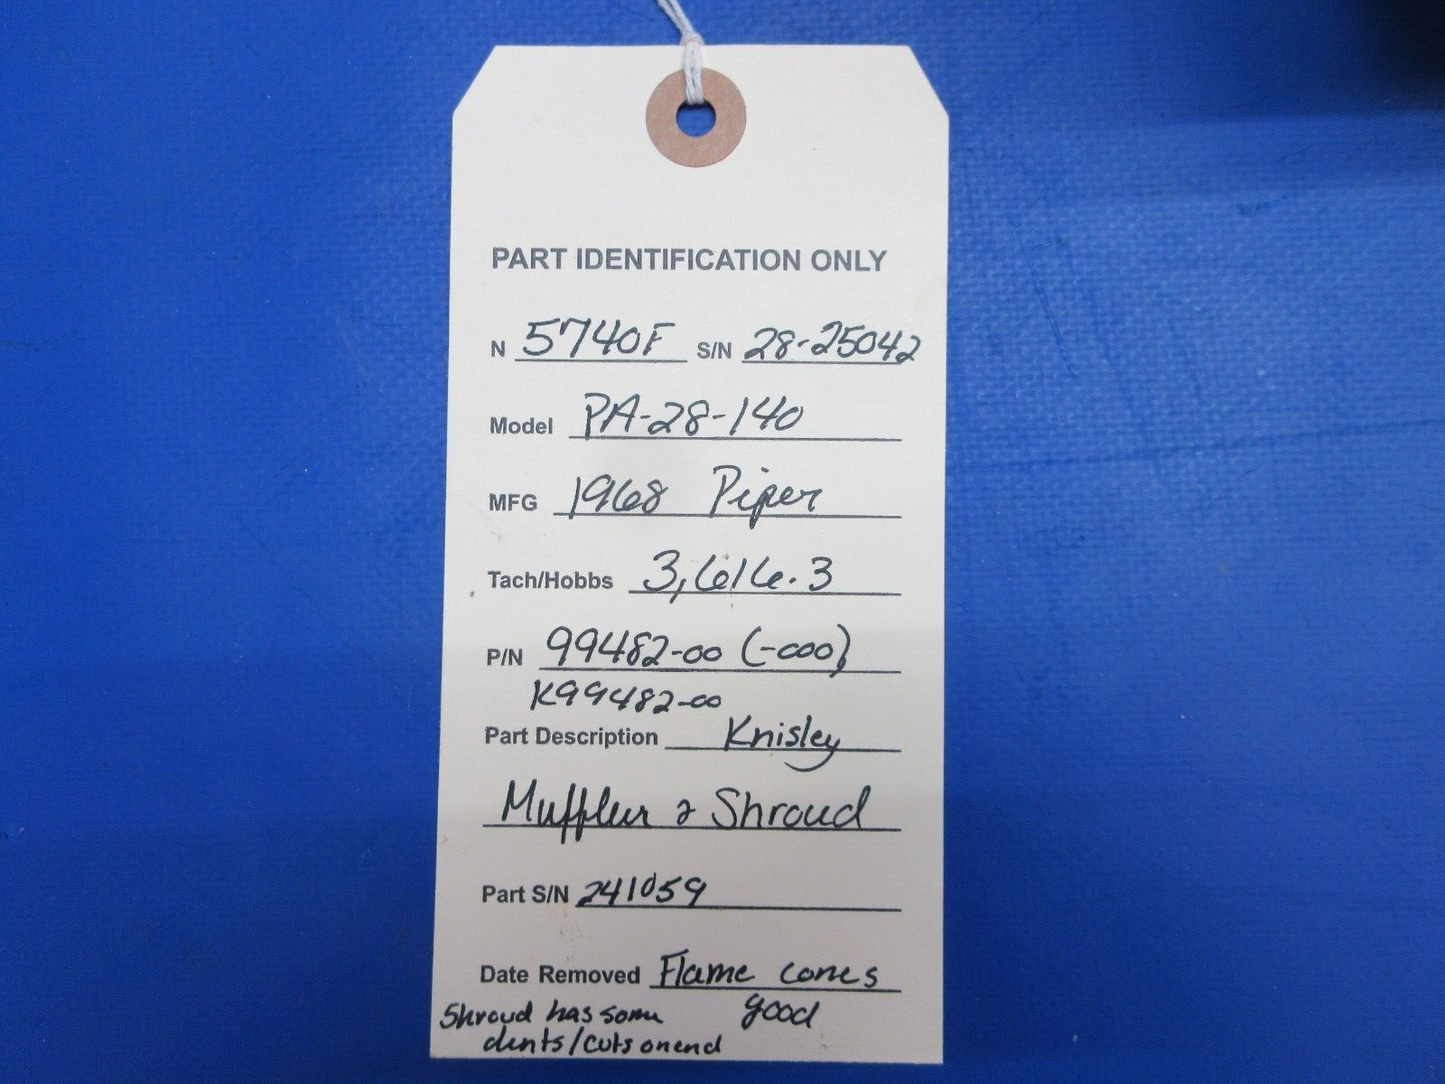 PART IDENTIFICATION ONLY
N 5740F S/N 28-25042
Model PA-28-140
MFG 1968 Piper
Tach/Hobbs 3,616.3
P/N 99482-00 (-000)
K99482-00
Part Description Knisley
Muffler & Shroud
Part S/N 241059
Date Removed Flame cones
good
Shroud has some
dents/cuts on end